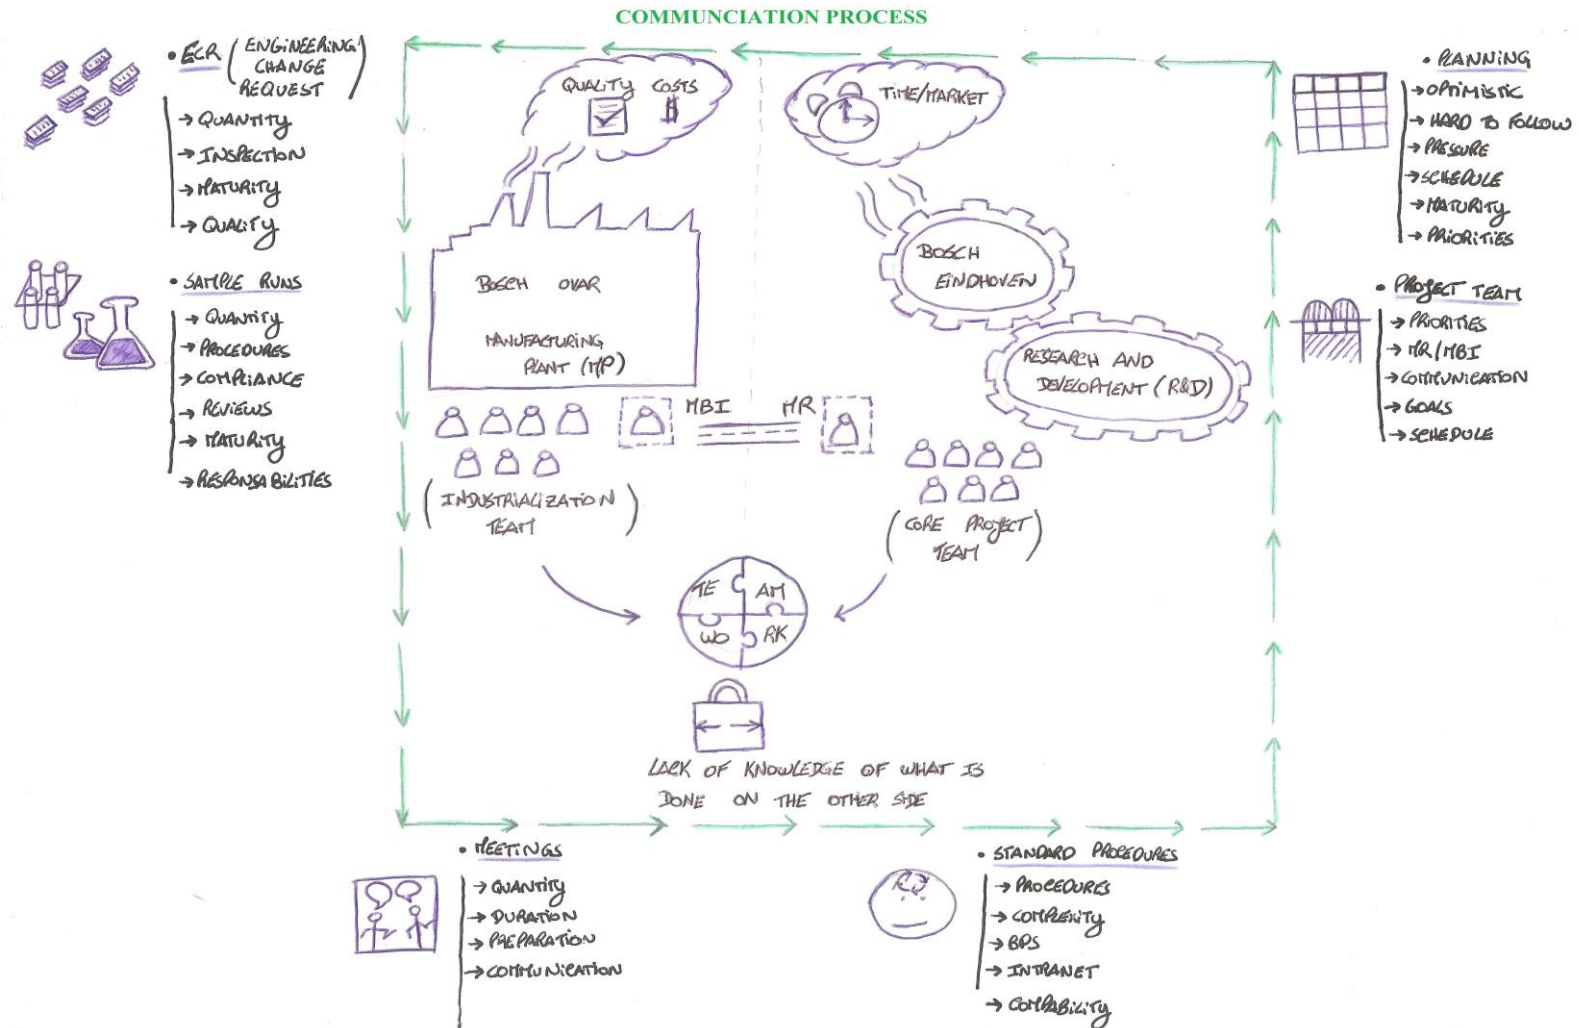 COMMUNCIATION PROCESS
• ECR (ENGINEERING
CHANGE
REQUEST)
→ QUANTITY
→ INSPECTION
→ MATURITY
→ QUALITY
• SAMPLE RUNS
→ QUANTITY
→ PROCEDURES
→ COMPLIANCE
→ REVIEWS
→ MATURITY
→ RESPONSABILITIES
QUALITY COSTS
$
TIME/MARKET
BOSCH OVAR
MANUFACTURING
PLANT (MP)
BOSCH
EINDHOVEN
RESEARCH AND
DEVELOPMENT (R&D)
MBI MR
(INDUSTRIALIZATION
TEAM)
(CORE PROJECT
TEAM)
TE AM
WO RK
LACK OF KNOWLEDGE OF WHAT IS
DONE ON THE OTHER SIDE
• PLANNING
→ OPTIMISTIC
→ HARD TO FOLLOW
→ PRESSURE
→ SCHEDULE
→ MATURITY
→ PRIORITIES
• PROJECT TEAM
→ PRIORITIES
→ MR/MBI
→ COMMUNICATION
→ GOALS
→ SCHEDULE
• MEETINGS
→ QUANTITY
→ DURATION
→ PREPARATION
→ COMMUNICATION
• STANDARD PROCEDURES
→ PROCEDURES
→ COMPLEXITY
→ BPS
→ INTRANET
→ COMPABILITY